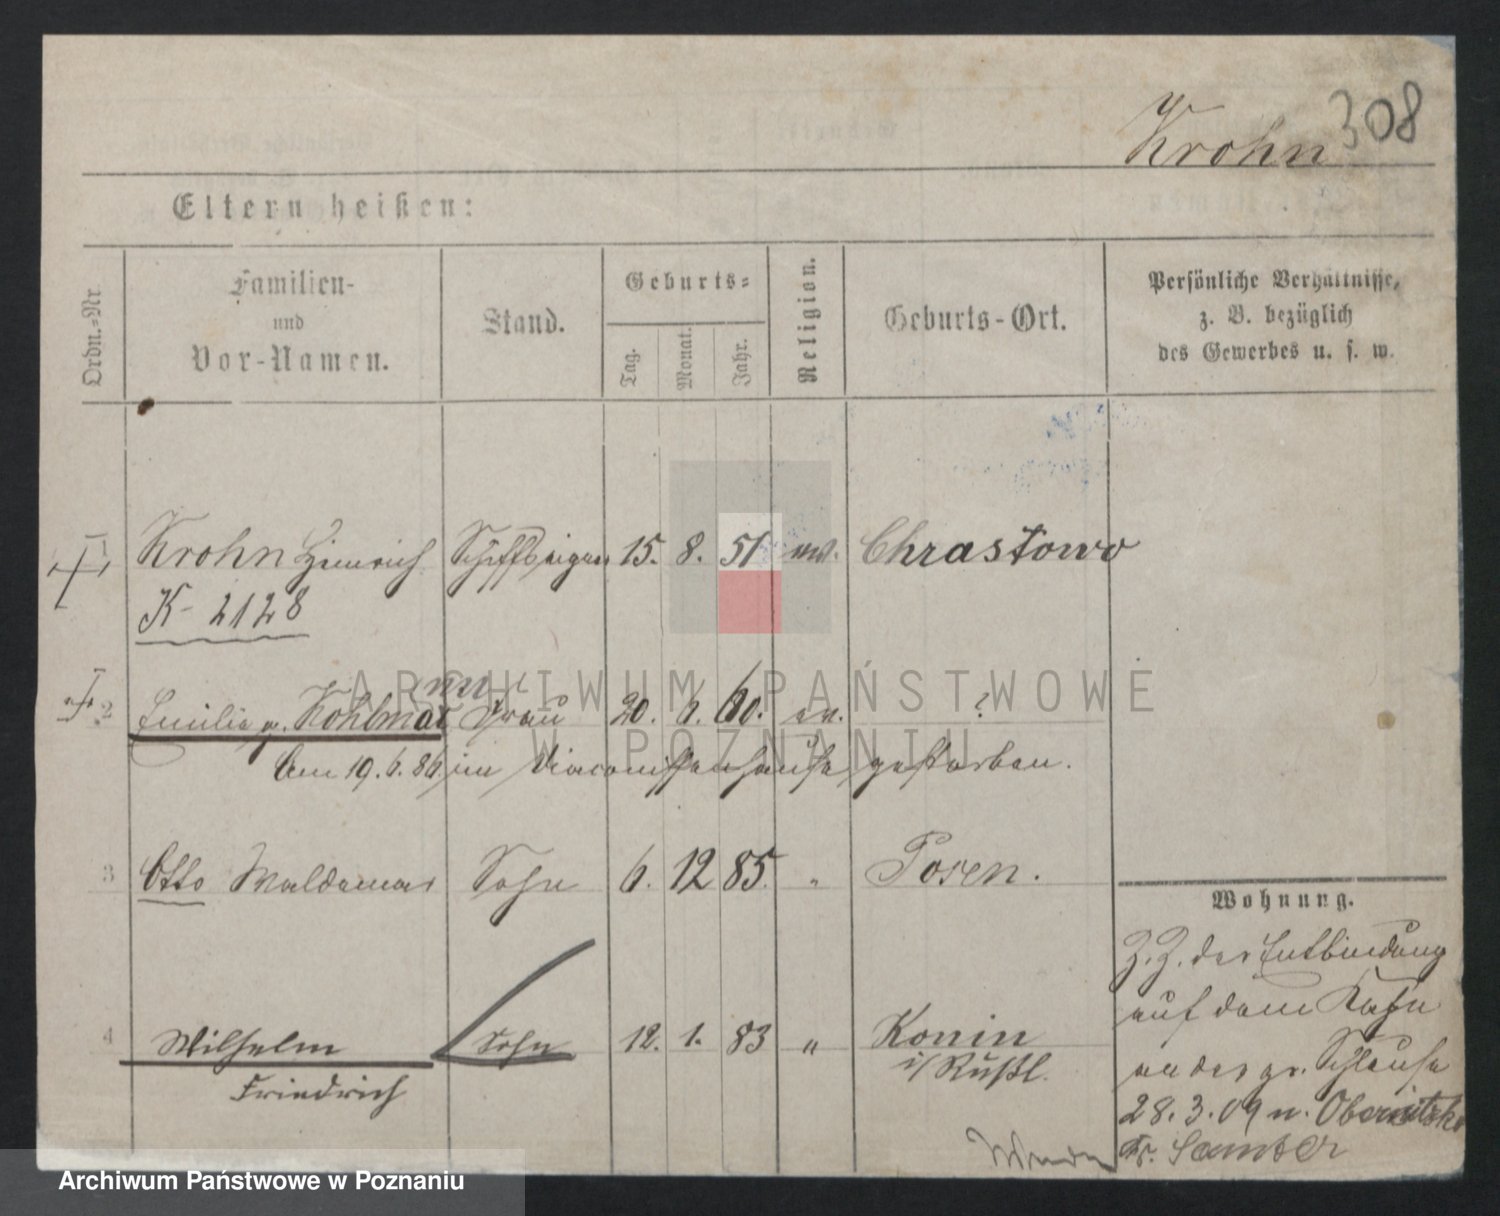 Krohn 308
Eltern heißen:
Ordn.-Nr.
Familien-
und
Vor-Namen.
Stand.
Geburts-
Tag.
Monat.
Jahr.
Religion.
Geburts-Ort.
Persönliche Verhältnisse,
z. B. bezüglich
des Gewerbes u. s. w.
1 Krohn Heinrich Schiffseigen 15. 8. 51 ev. Chrastowo
K- 2128
2 Emilie g. Kohlmat Frau 20. 6. 60. ev. ?
Am 19. 6. 86 im Diaconissenhause gestorben.
3 Otto Waldemar Sohn 6. 12 85. " Posen.
4 Wilhelm Sohn 12. 1. 83 " Konin
i/Rußl.
Friedrich
Wohnung.
Z. Z. der Entbindung
auf dem Kahn
an der gr. Schleuse
28. 3. 09 n. Obersitzko
Kr. Samter
ARCHIWUM PAŃSTWOWE
W POZNANIU
Archiwum Państwowe w Poznaniu